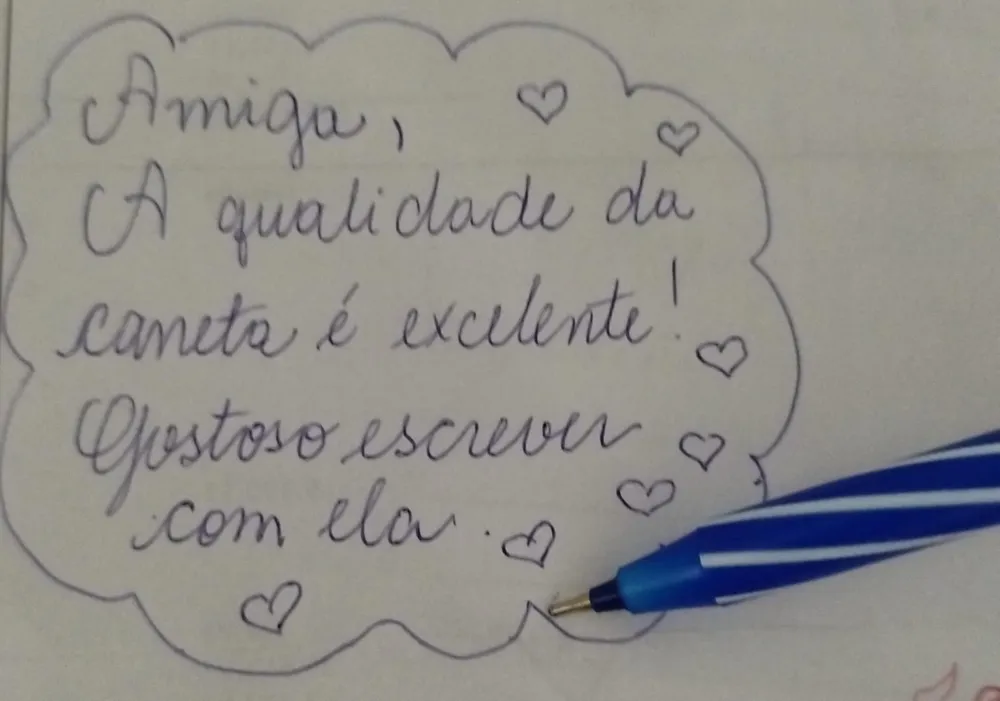 Amiga,
A qualidade da
caneta é excelente!
Gostoso escrever
com ela.